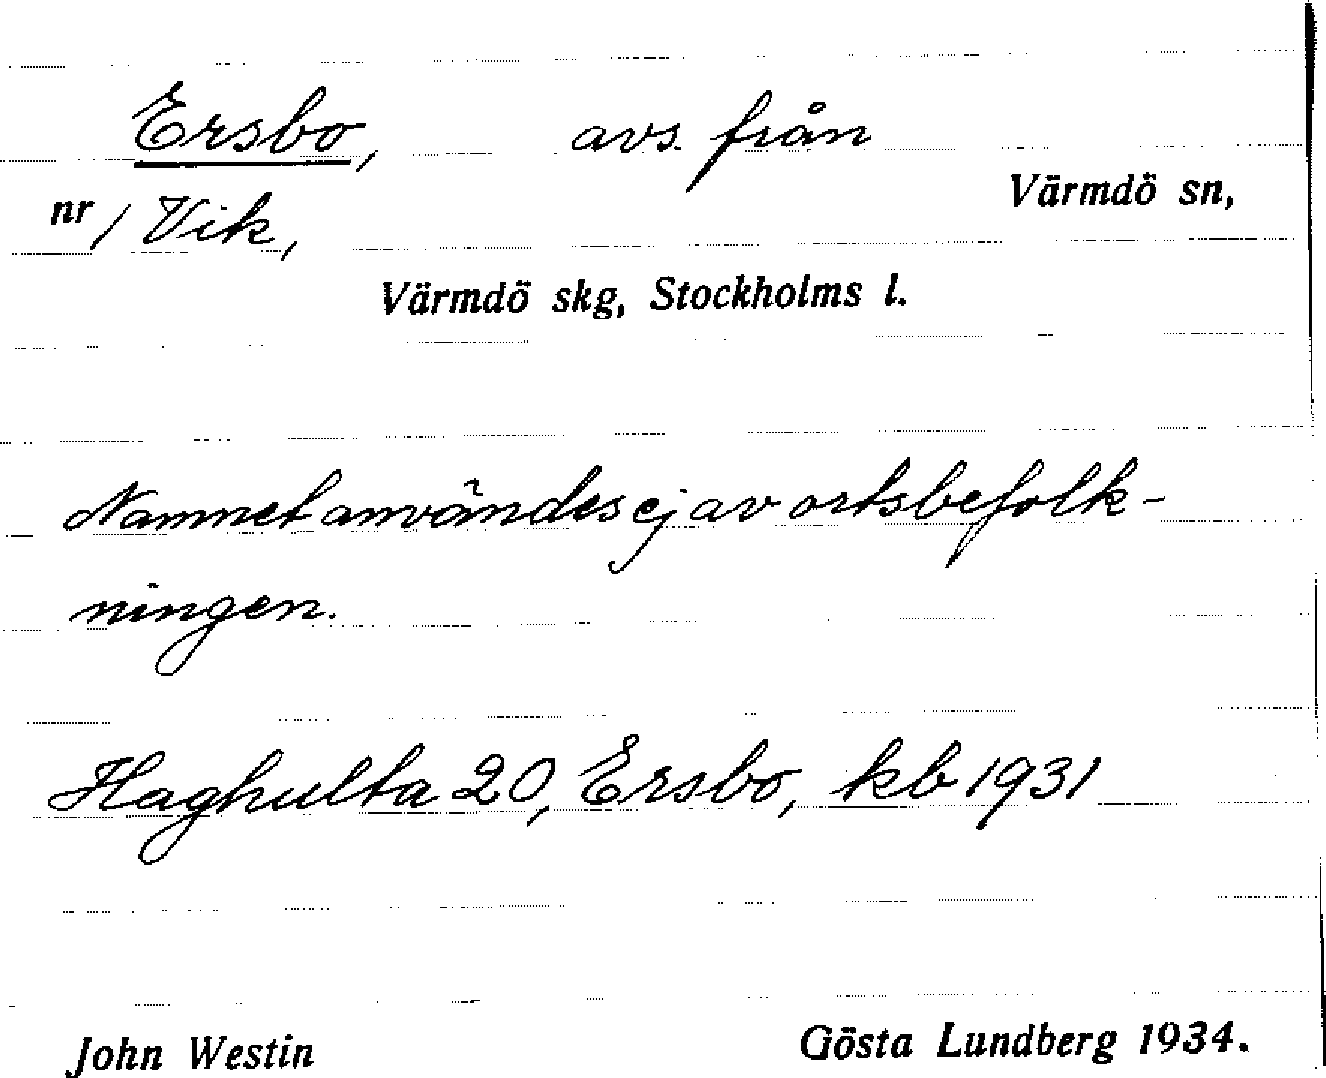 Ersbo, avs. från
nr 1 Vik, Värmdö sn,
Värmdö skg, Stockholms l.
Namnet användes ej av ortsbefolk-
ningen.
Haghulta 20, Ersbo, kb 1931
John Westin Gösta Lundberg 1934.